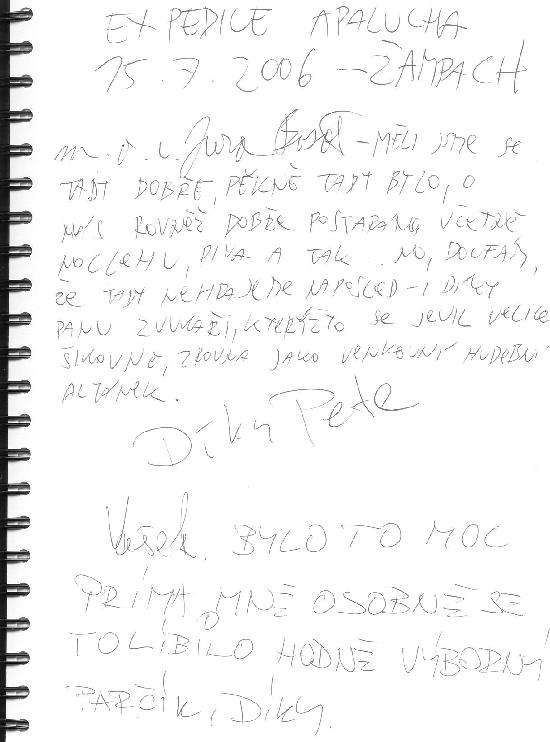 EXPEDICE APALUCHA
15.7.2006 – ŽAMPACH
m.o.c. Jura – MĚLI JSME SE
TADY DOBŘE, PĚKNĚ TADY BYLO, O
NÁS ROVNĚŽ DOBŘE POSTARÁNO VČETNĚ
NOCLEHU, PIVA A TAK.. NO, DOUFÁM,
ŽE TADY NEHRAJEME NAPOSLED – I DÍKY
PANU ZVUKAŘI, KTERÝŽTO SE JEVIL VELICE
ŠIKOVNĚ, ZROVNA JAKO VENKOVNÍ HUDEBNÍ
ALTÁNEK.
Díky Pete
Vašek. BYLO TO MOC
PRÍMA, MNĚ OSOBNĚ SE
TO LÍBILO HODNĚ VÝBORNÝ
PARČÍK, DÍKY.